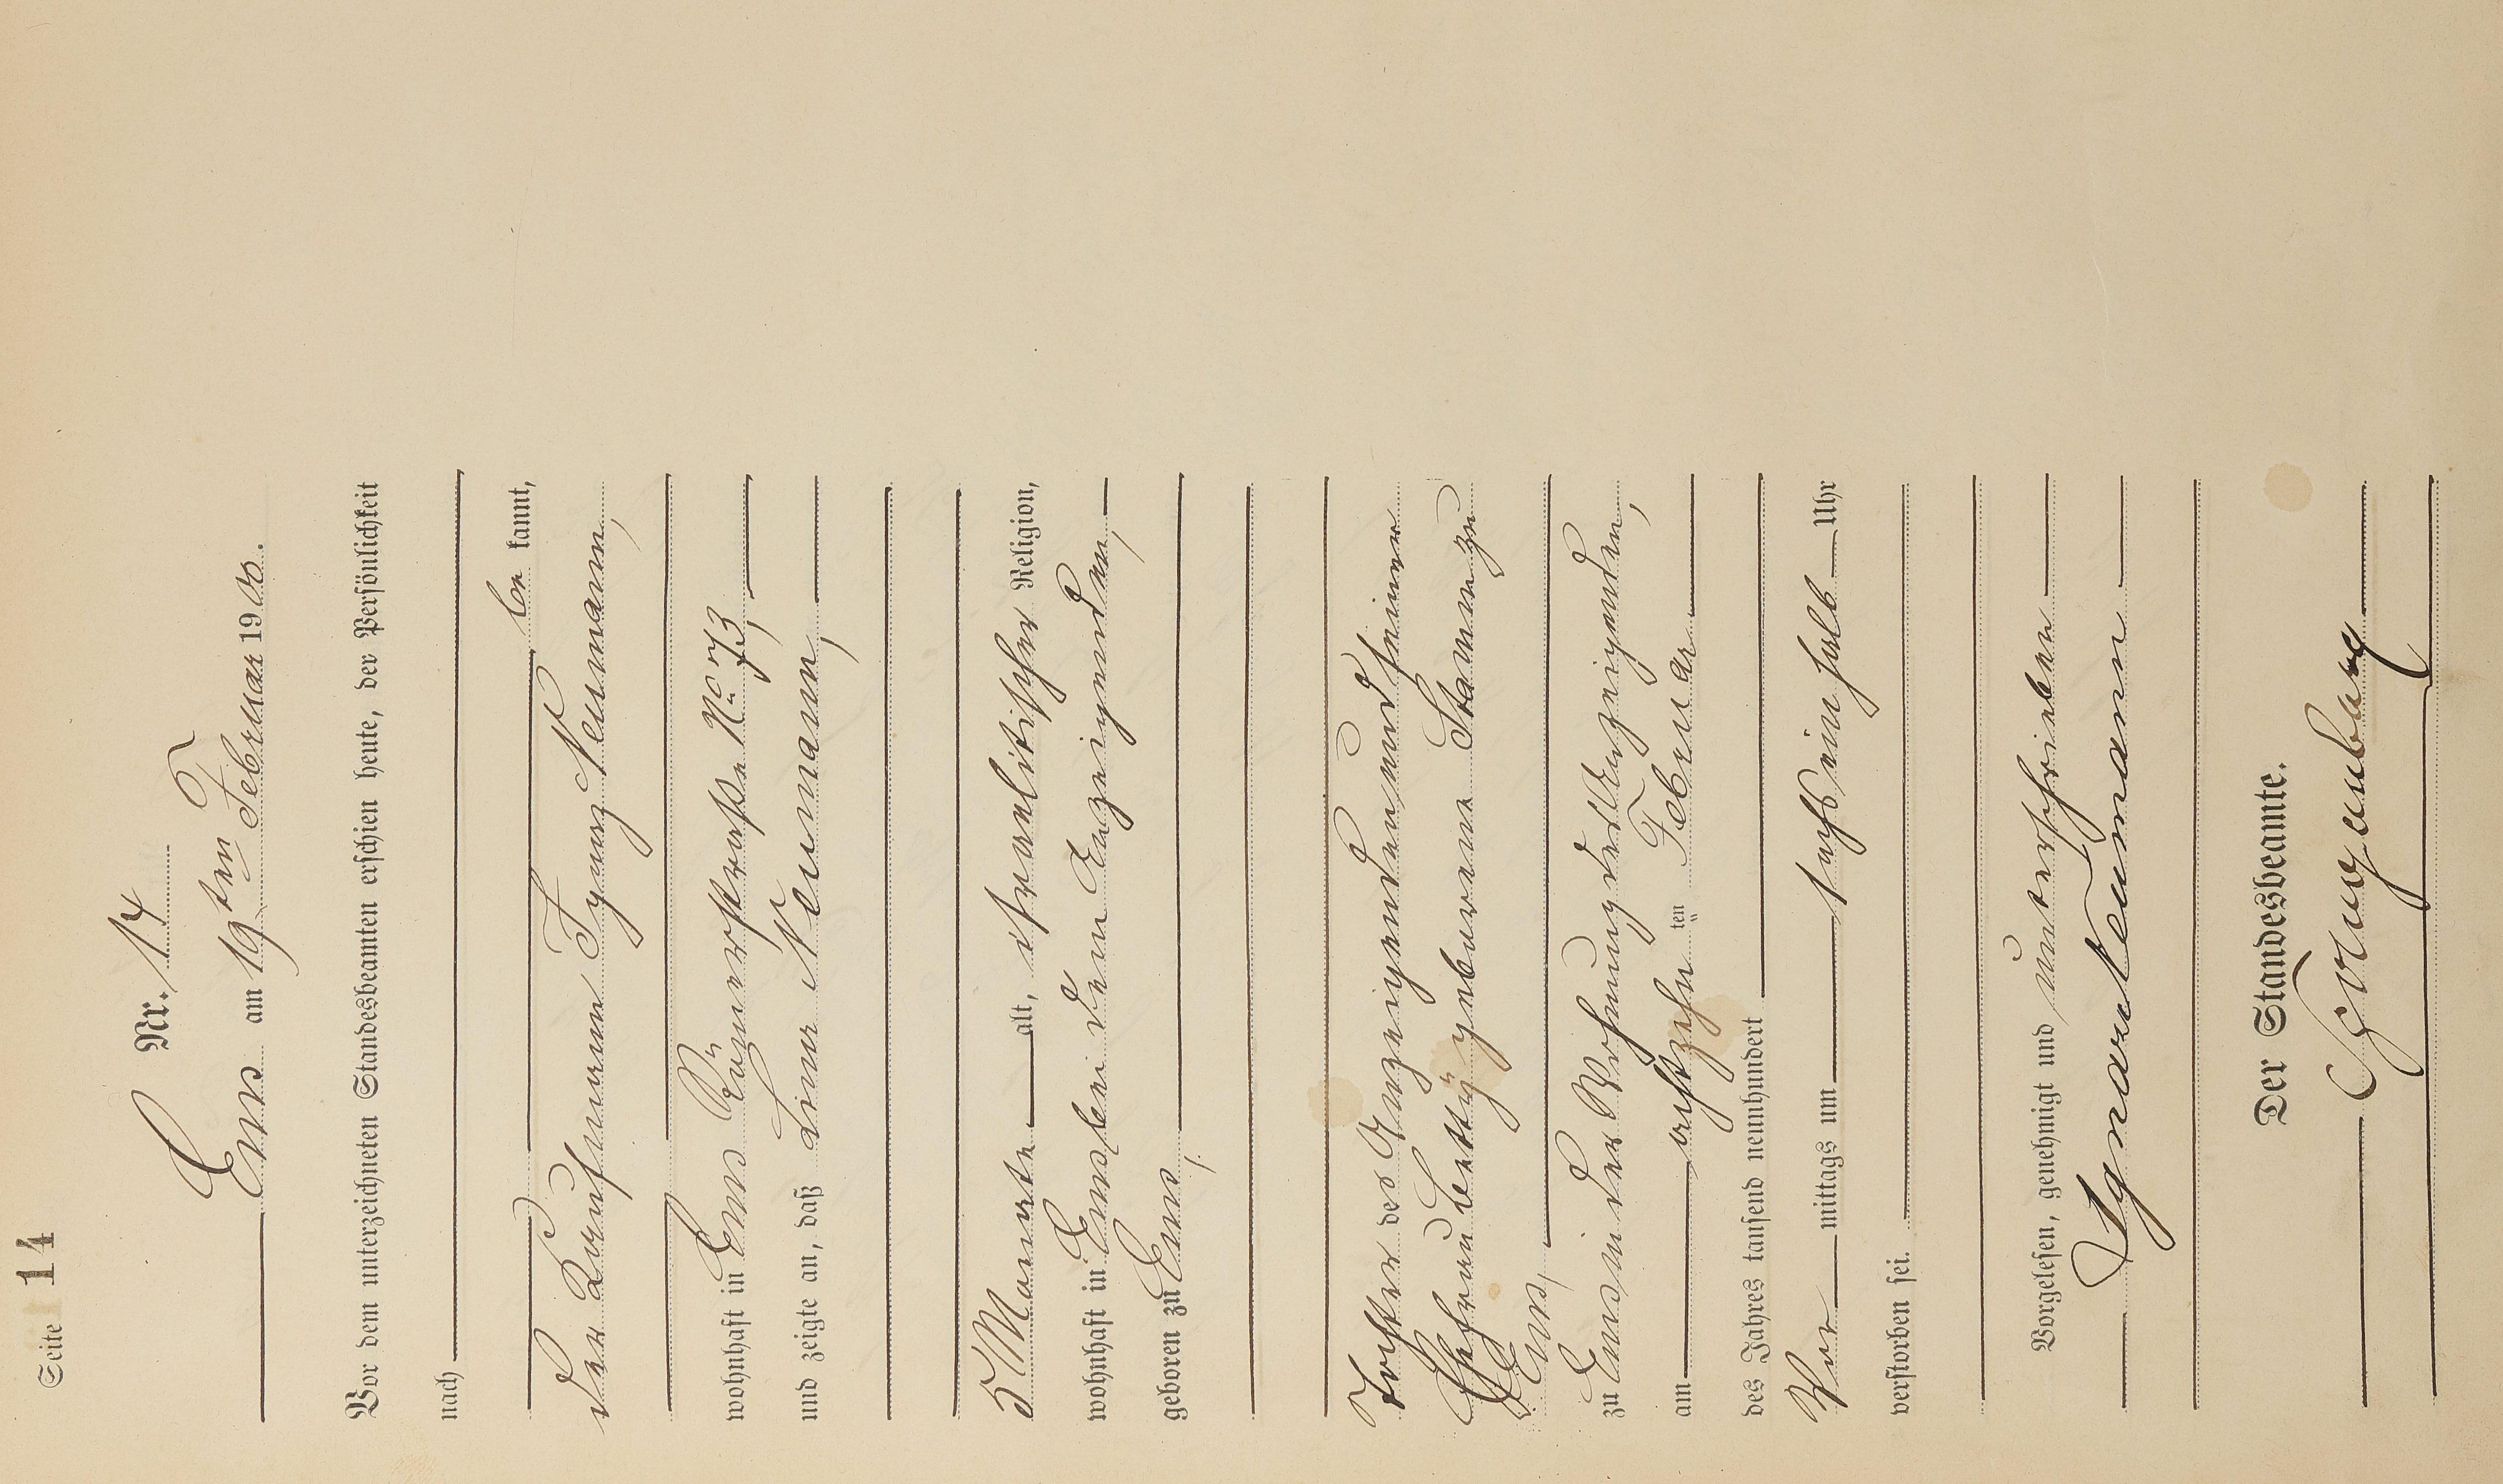 Seite 14
Nr. 14
Ems am 19ten Februar 1900.
Vor dem unterzeichneten Standesbeamten erschien heute, der Persönlichkeit
nach
be kannt,
der Kaufmann Ignaz Neumann,
wohnhaft in Ems Römerstraße No 73,
und zeigte an, daß Lina Neumann,
5 Monate alt, israelitischer Religion,
wohnhaft in Ems bei dem Anzeigenden,
geboren zu Ems,
Tochter des Anzeigenden und seiner
Ehefrau Betty geborene Stamm zu
Ems,
zu Ems in der Wohnung des Anzeigenden,
am achtzehn ten Februar
des Jahres tausend neunhundert
Vor mittags um ein halb Uhr
verstorben sei.
Vorgelesen, genehmigt und unterschrieben
Ignatz Neumann
Der Standesbeamte.